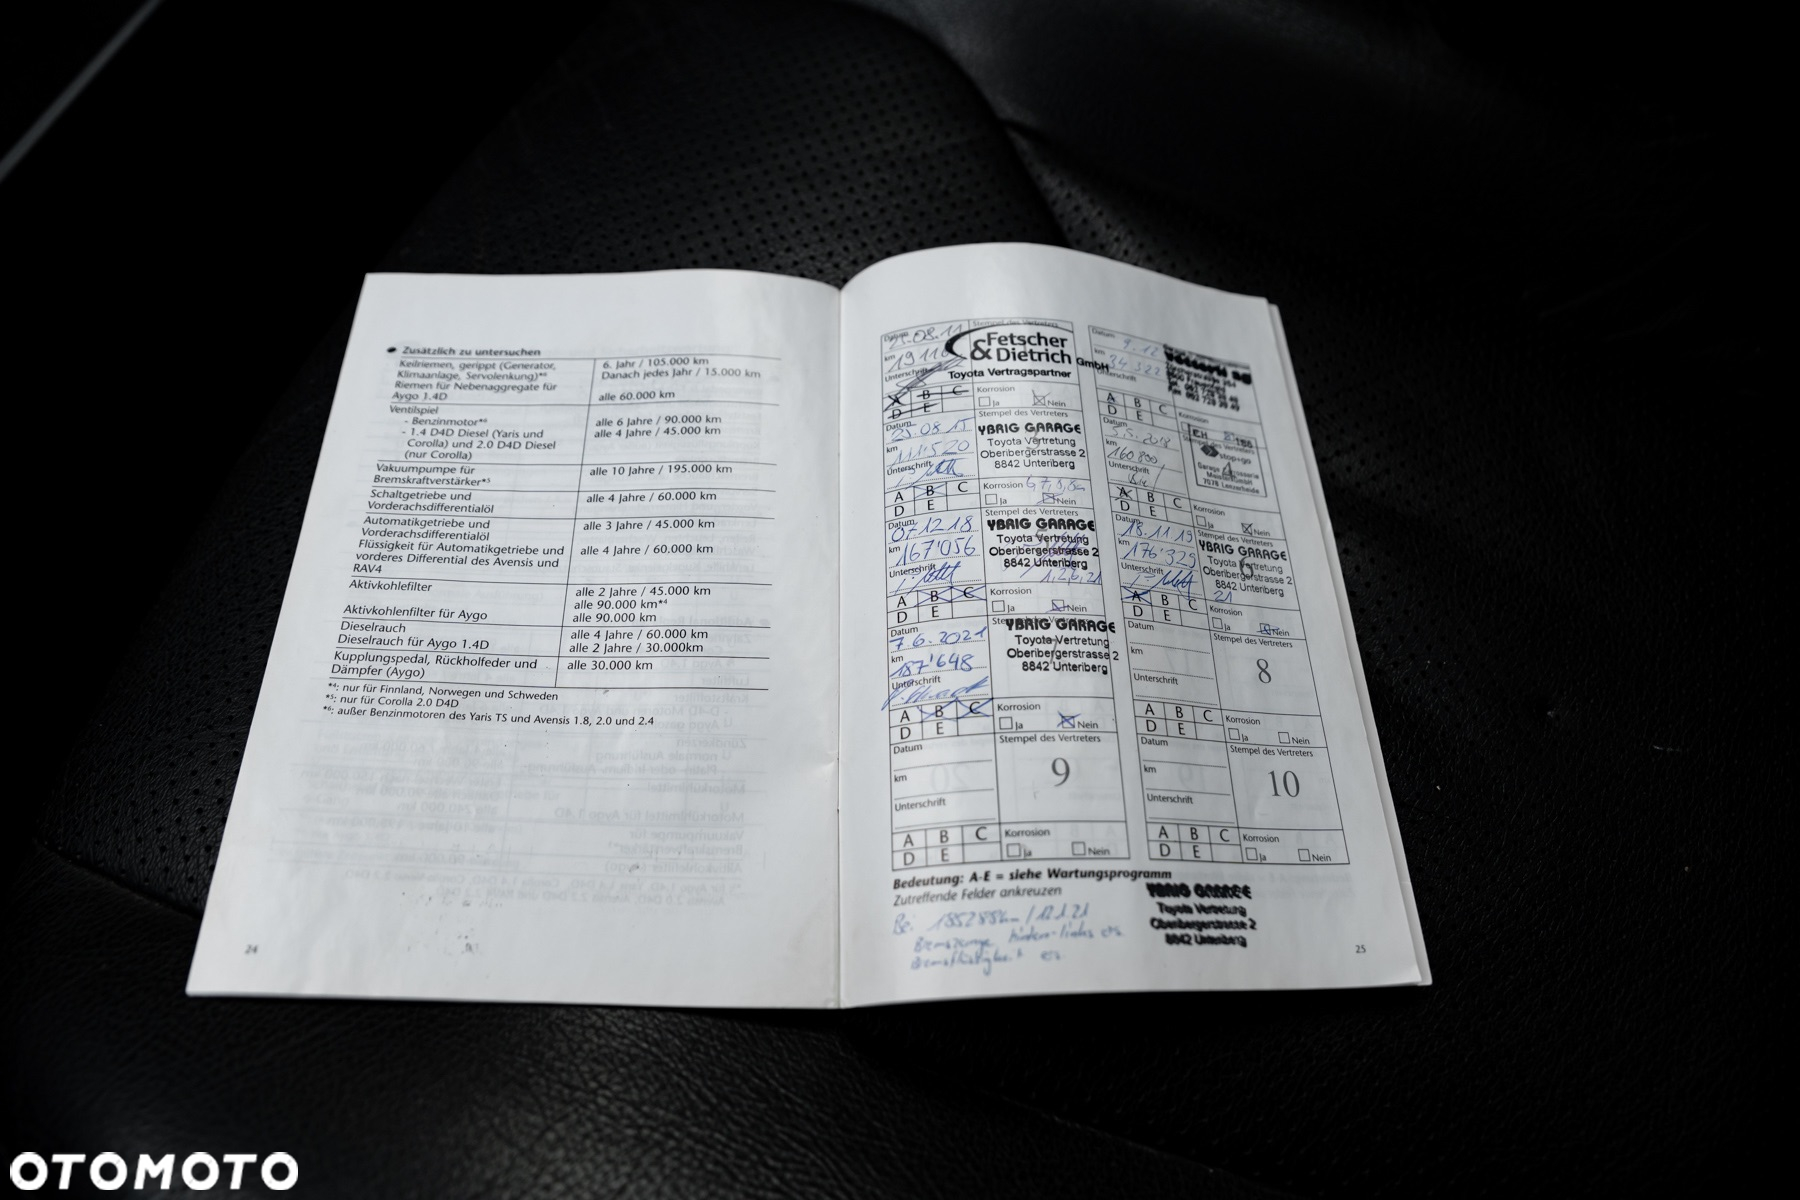 Zusätzlich zu untersuchen
Keilriemen, gerippt (Generator, Klimaanlage, Servolenkung)*⁶
6. Jahr / 105.000 km
Danach jedes Jahr / 15.000 km
Riemen für Nebenaggregate für Aygo 1.4D
alle 60.000 km
Ventilspiel
- Benzinmotor*⁶
alle 6 Jahre / 90.000 km
- 1.4 D4D Diesel (Yaris und Corolla) und 2.0 D4D Diesel (nur Corolla)
alle 4 Jahre / 45.000 km
Vakuumpumpe für Bremskraftverstärker*⁵
alle 10 Jahre / 195.000 km
Schaltgetriebe und Vorderachsdifferentialöl
alle 4 Jahre / 60.000 km
Automatikgetriebe und Vorderachsdifferentialöl
alle 3 Jahre / 45.000 km
Flüssigkeit für Automatikgetriebe und vorderes Differential des Avensis und RAV4
alle 4 Jahre / 60.000 km
Aktivkohlefilter
alle 2 Jahre / 45.000 km
alle 90.000 km*⁴
Aktivkohlenfilter für Aygo
alle 90.000 km
Dieselrauch
alle 4 Jahre / 60.000 km
Dieselrauch für Aygo 1.4D
alle 2 Jahre / 30.000km
Kupplungspedal, Rückholfeder und Dämpfer (Aygo)
alle 30.000 km
*⁴: nur für Finnland, Norwegen und Schweden
*⁵: nur für Corolla 2.0 D4D
*⁶: außer Benzinmotoren des Yaris TS und Avensis 1.8, 2.0 und 2.4
24
Datum
Stempel des Vertreters
km
Unterschrift
Fetscher & Dietrich GmbH
Toyota Vertragspartner
A B C
D E
Korrosion
Ja Nein
Datum
km
34 322
Unterschrift
A B C
D E
Korrosion
Datum 25.08.15
km 111'520
Unterschrift
Stempel des Vertreters
YBRIG GARAGE
Toyota Vertretung
Oberibergerstrasse 2
8842 Unteriberg
A B C
D E
Korrosion
Ja Nein
Datum
5.5.2018
km
160 800
Unterschrift
Stempel des Vertreters
stop+go
7078 Lenzerheide
A B C
D E
Korrosion
Ja Nein
Datum 07.12.18
km 167'056
Unterschrift
Stempel des Vertreters
YBRIG GARAGE
Toyota Vertretung
Oberibergerstrasse 2
8842 Unteriberg
A B C
D E
Korrosion
Ja Nein
Datum 18.11.19
km 176'329
Unterschrift
Stempel des Vertreters
YBRIG GARAGE
Toyota Vertretung
Oberibergerstrasse 2
8842 Unteriberg
A B C
D E
Korrosion
Ja Nein
Datum
7.6.2021
km
187'648
Unterschrift
YBRIG GARAGE
Toyota Vertretung
Oberibergerstrasse 2
8842 Unteriberg
A B C
D E
Korrosion
Ja Nein
Datum
km
Unterschrift
Stempel des Vertreters
8
A B C
D E
Korrosion
Ja Nein
Datum
km
Unterschrift
Stempel des Vertreters
9
A B C
D E
Korrosion
Ja Nein
Datum
km
Unterschrift
Stempel des Vertreters
10
A B C
D E
Korrosion
Ja Nein
Bedeutung: A-E = siehe Wartungsprogramm
Zutreffende Felder ankreuzen
YBRIG GARAGE
Toyota Vertretung
Oberibergerstrasse 2
8842 Unteriberg
25
OTOMOTO